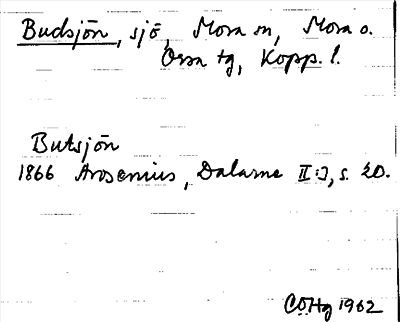 Budsjön, sjö, Mora sn, Mora o.
Orsa tg, Kopp. l.
Butsjön
1866 Arosenius, Dalarne II:2, s. 20.
COHg 1962